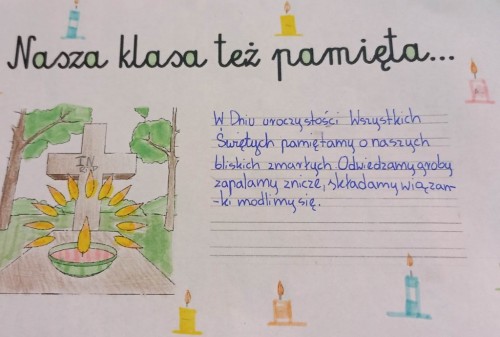 Nasza klasa też pamięta...
W Dniu uroczystości Wszystkich
Świętych pamiętamy o naszych
bliskich zmarłych. Odwiedzamy groby
zapalamy znicze, składamy wiązan-
-ki modlimy się.
IN